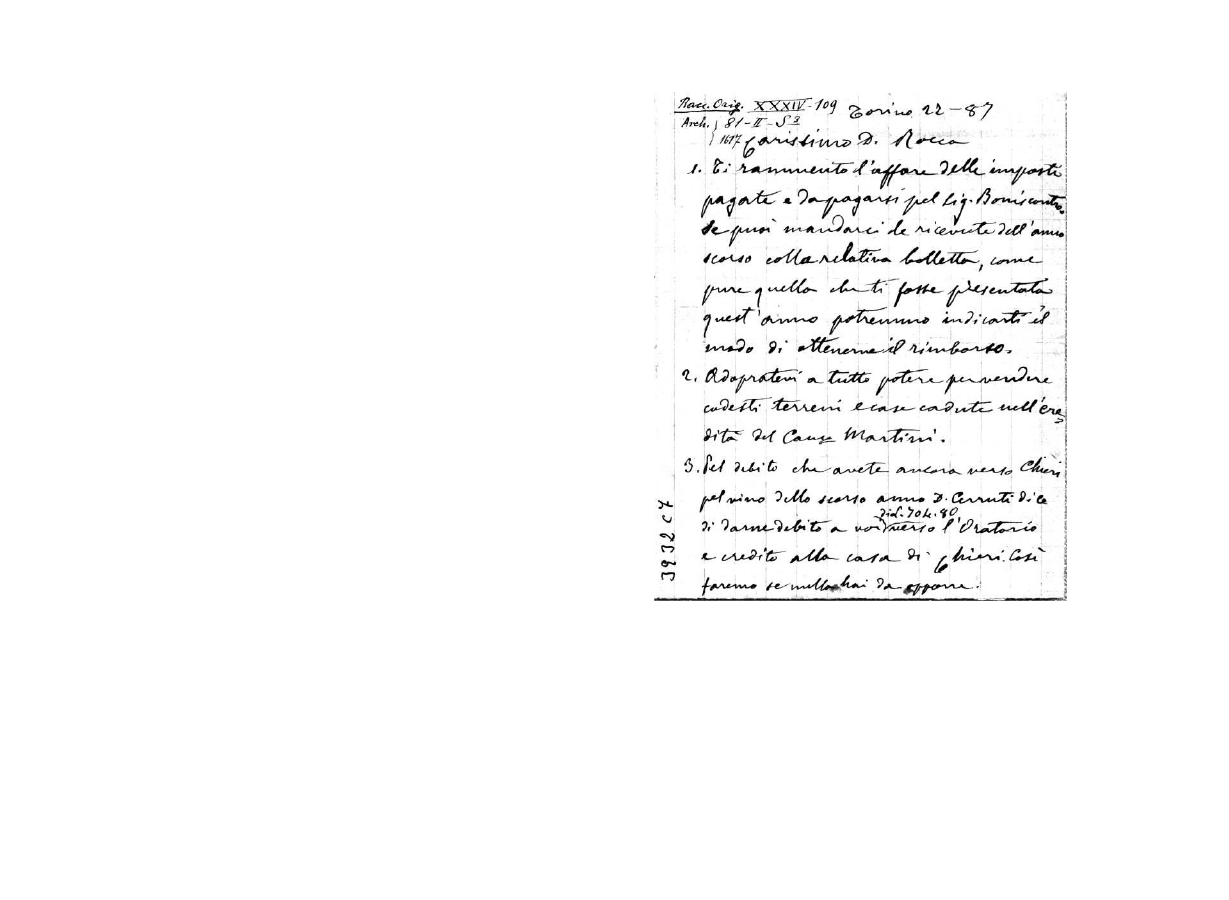 Racc. Orig. XXXIV-109 Torino 22-87
Arch. 81-II-S3
1617 Carissimo D. Rocca
1. Ti rammento l'affare delle imposte
pagate e da pagarsi pel Sig. Boniscontro.
Se puoi mandarci le ricevute dell'anno
scorso colla relativa bolletta, come
pure quella che ti fosse presentata
quest'anno potremmo indicarti il
modo di ottenerne il rimborso.
2. Adopratevi a tutto potere per vendere
codesti terreni e case cadute nell'ere=
dità del Martini.
3. Pel debito che avete ancora verso Chieri
pel vino dello scorso anno D. Cerruti dice
704.80
di darne debito a voi verso l'Oratorio
e credito alla casa di Chieri. Così
faremo se nulla hai da opporre.
3932 C7